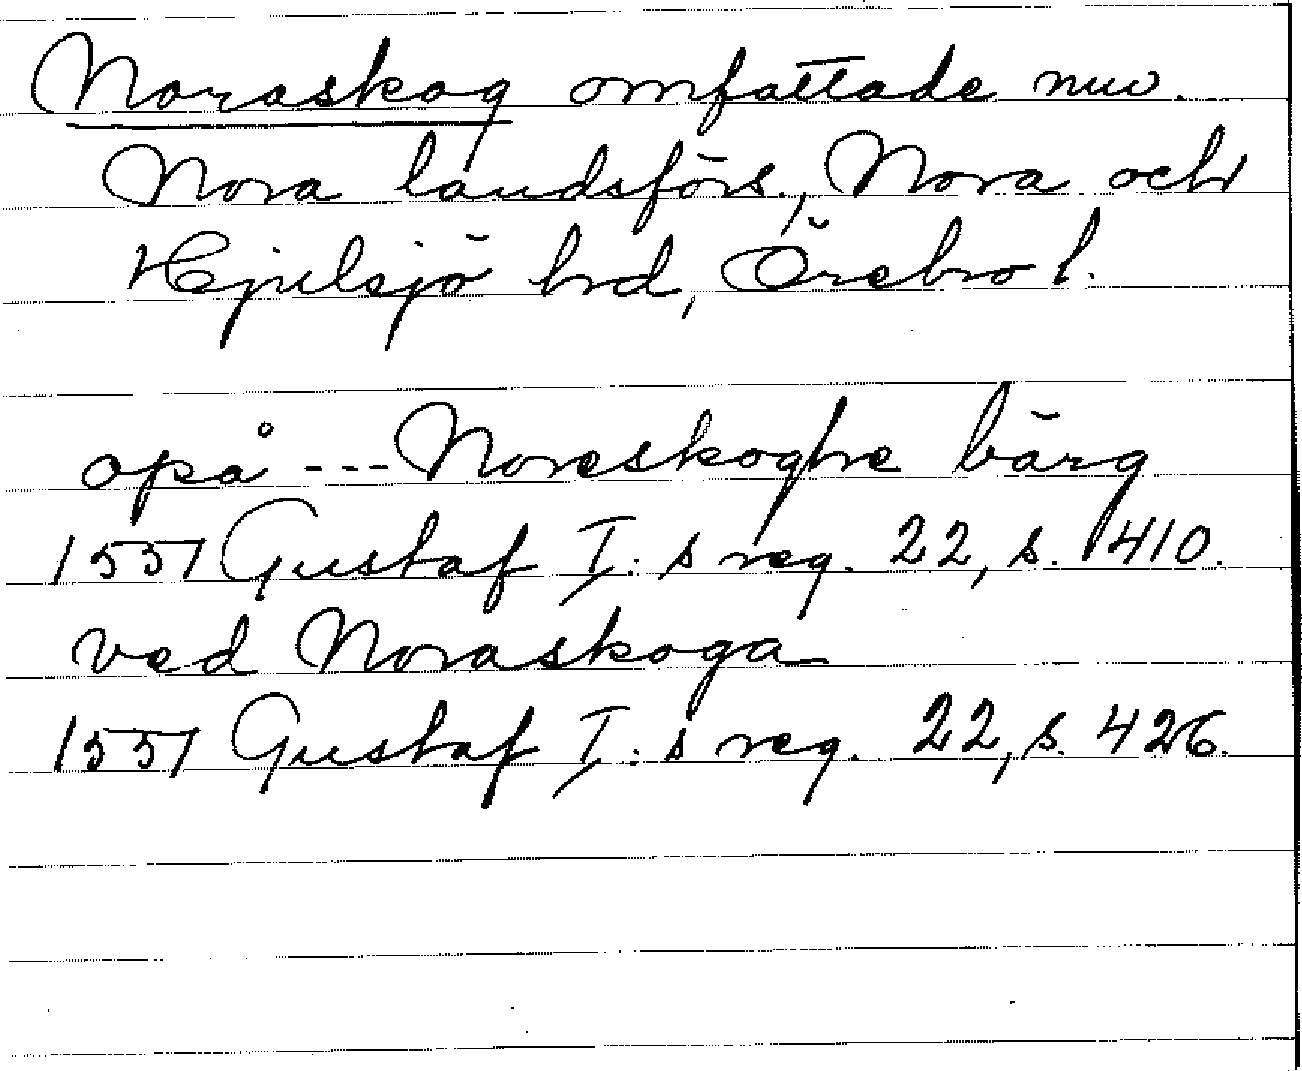 Noraskog omfattade nuv.
Nora landsförs., Nora och
Hjulsjö hrd, Örebro l.
opå --- Noreskoghe bärg
1551 Gustaf I:s reg. 22, s. 410.
ved Noraskoga
1551 Gustaf I:s reg. 22, s. 426.